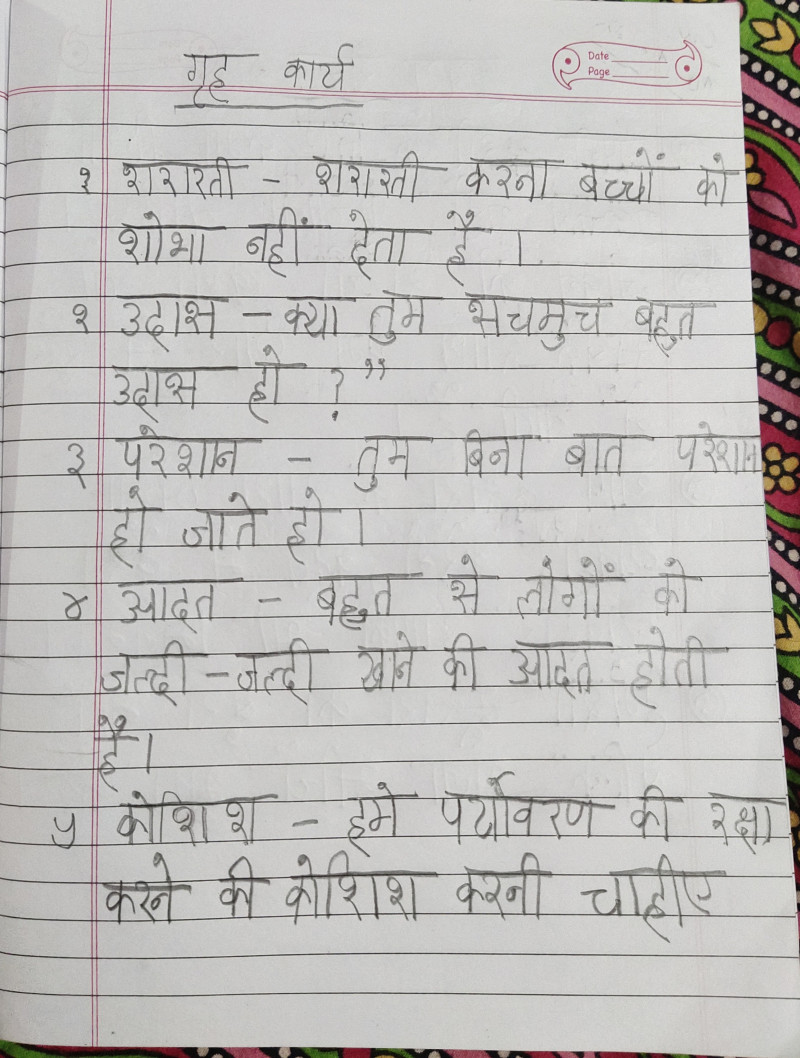 गृह कार्य
Date
Page
१ शरारती - शरारती करना बच्चों को
शोभा नहीं देता है ।
२ उदास - क्या तुम सचमुच बहुत
उदास हो ? "
३ परेशान - तुम बिना बात परेशान
हो जाते हो ।
४ आदत - बहुत से लोगों को
जल्दी - जल्दी खाने की आदत होती
है ।
५ कोशिश - हमे पर्यावरण की रक्षा
करने की कोशिश करनी चाहीए